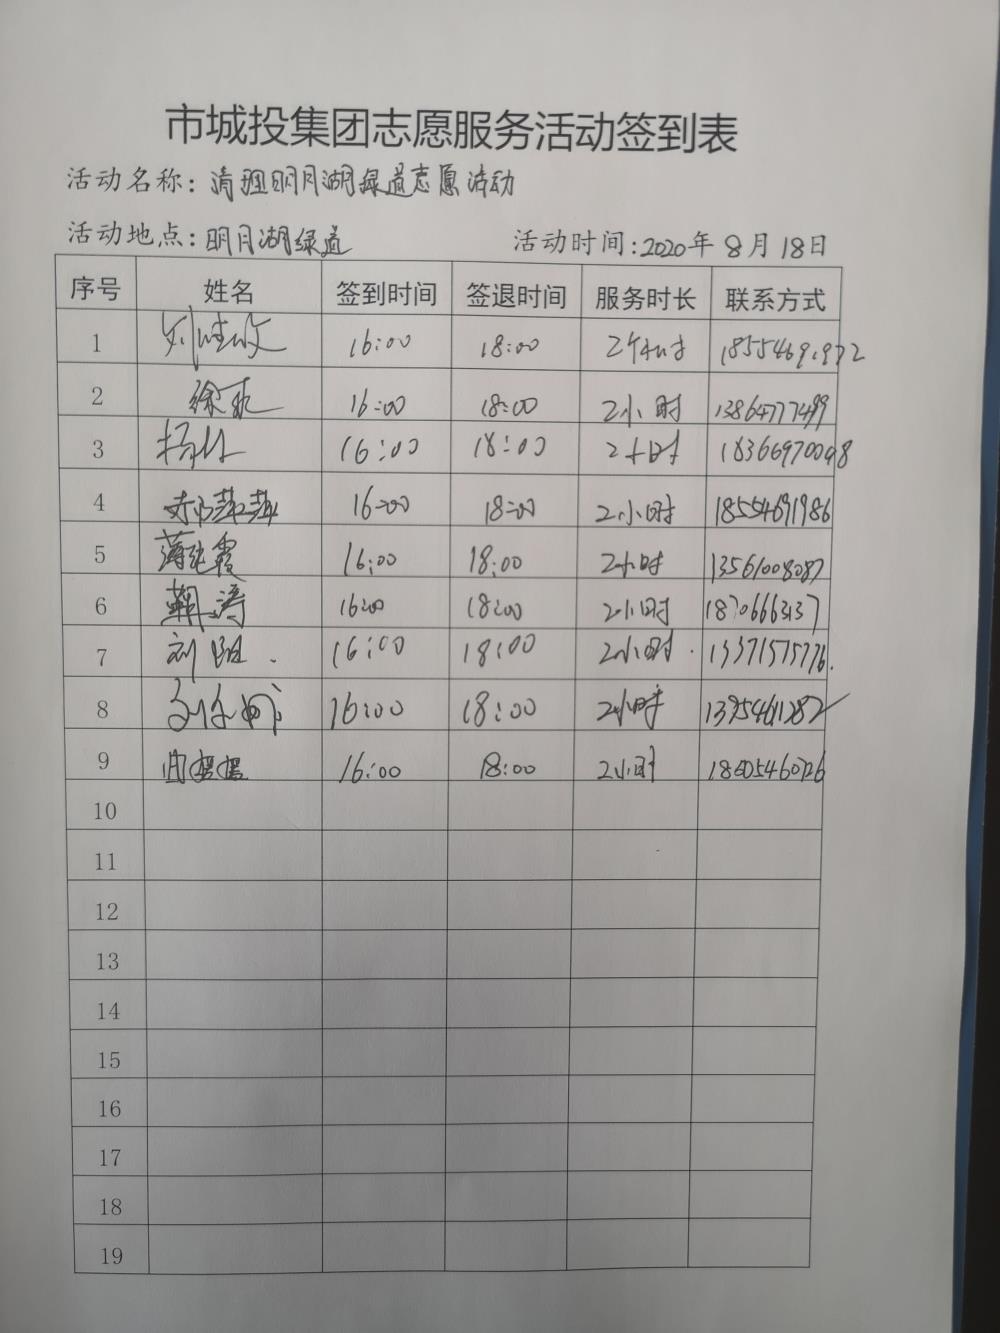 市城投集团志愿服务活动签到表
活动名称: 清理明月湖绿道志愿活动
活动地点: 明月湖绿道 活动时间: 2020年 8月 18日
序号 姓名 签到时间 签退时间 服务时长 联系方式
1 16:00 18:00 2个小时
2 16:00 18:00 2小时 13864777499
3 16:00 18:00 2小时
4 16:00 18:00 2小时 18554691986
5 薄纯霞 16:00 18:00 2小时 13561008087
6 靳涛 16:00 18:00 2小时
7 刘阳 16:00 18:00 2小时 13371575776
8 16:00 18:00 2小时 13954611282
9 16:00 18:00 2小时
10
11
12
13
14
15
16
17
18
19